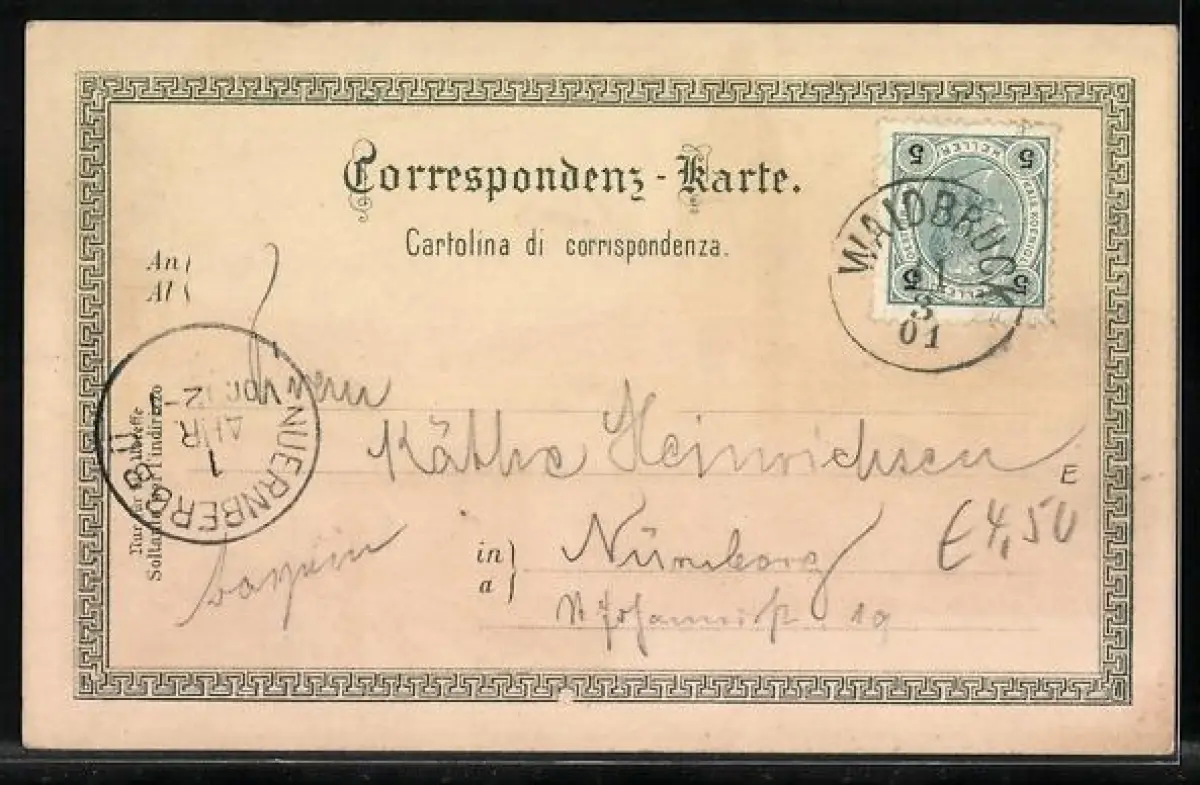 Correspondenz-Karte.
Cartolina di corrispondenza.
An
Al
5 HELLER 5
5 HELLER 5
WAIDBRUCK
1
3
01
NUERNBERG B II
1
APR
12-
Nur für die Adresse
Soltanto per l'indirizzo
Käthe Heinrichsen
E
in Nürnberg
a
Bayern
19
€ 4,50